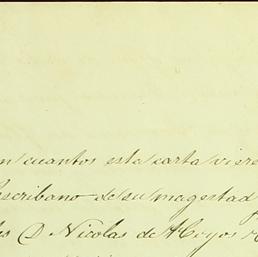 cuantos esta carta viere
escribano de su magestad
D Nicolas de Hoyos